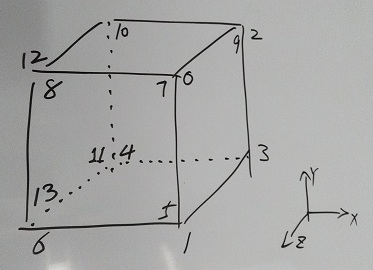 10
9 2
12
8 7 0
11 4 3
13 5
6 1
Y
X
Z